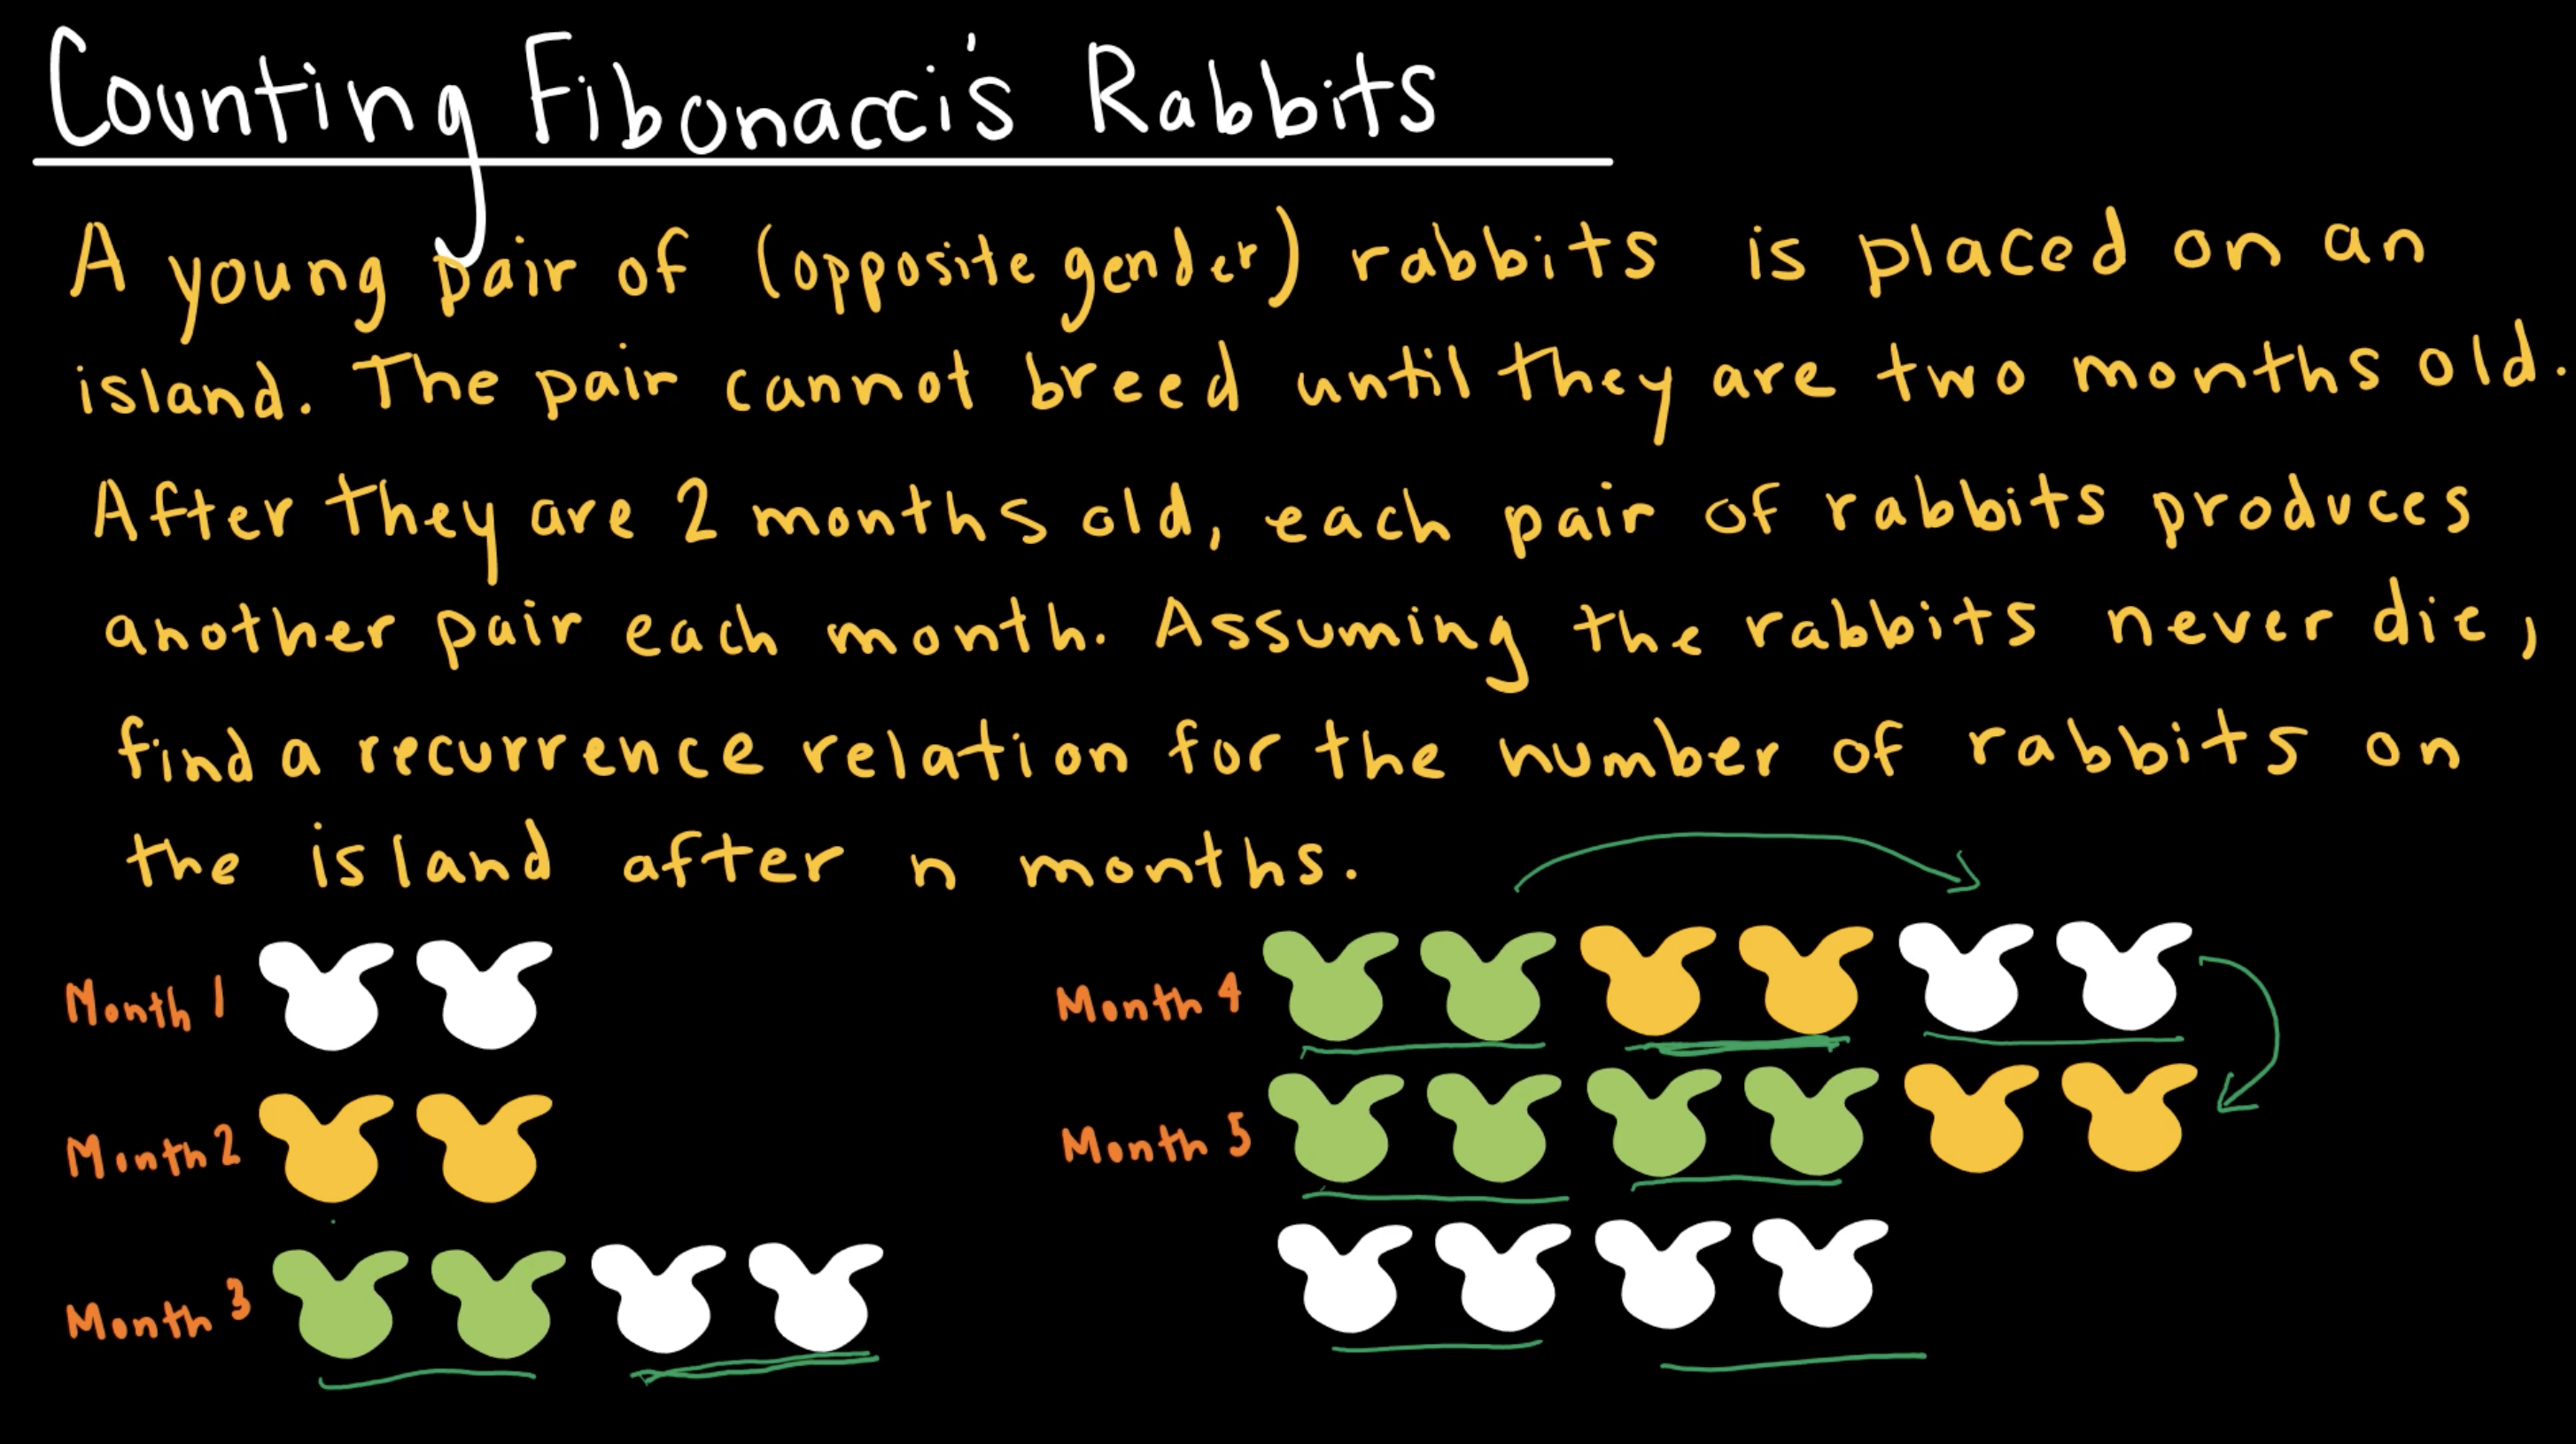 Counting Fibonacci's Rabbits
A young pair of (opposite gender) rabbits is placed on an
island. The pair cannot breed until they are two months old.
After they are 2 months old, each pair of rabbits produces
another pair each month. Assuming the rabbits never die,
find a recurrence relation for the number of rabbits on
the island after n months.
Month 1
Month 2
Month 3
Month 4
Month 5